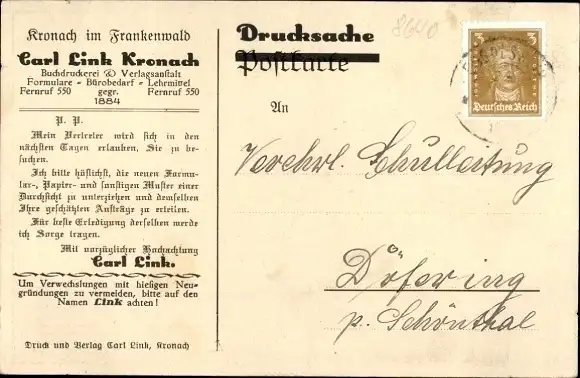 Kronach im Frankenwald
Carl Link Kronach
Buchdruckerei & Verlagsanstalt
Formulare - Bürobedarf - Lehrmittel
Fernruf 550 gegr. Fernruf 550
1884
P. P.
Mein Vertreter wird sich in den
nächsten Tagen erlauben, Sie zu be-
suchen.
Ich bitte höflichst, die neuen Formu-
lar-, Papier- und sonstigen Muster einer
Durchsicht zu unterziehen und demselben
Ihre geschätzten Aufträge zu erteilen.
Für beste Erledigung derselben werde
ich Sorge tragen.
Mit vorzüglicher Hochachtung
Carl Link.
Um Verwechslungen mit hiesigen Neu-
gründungen zu vermeiden, bitte auf den
Namen Link achten!
Druck und Verlag Carl Link, Kronach
Drucksache
Postkarte
8640
3 3
Deutsches Reich
An
Verehrl. Schulleitung
Döfering
p. Schönthal